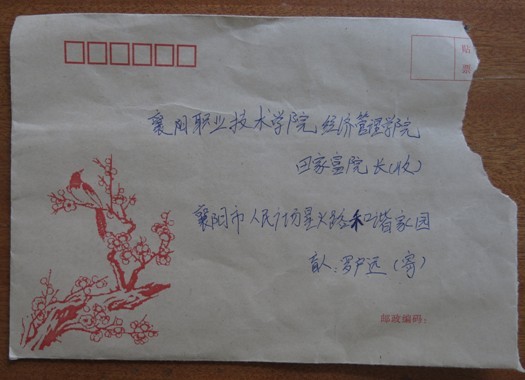 贴
票
襄阳职业技术学院经济管理学院
田家富院长(收)
襄阳市人民广场星火路和谐家园
盲人:罗户远(寄)
邮政编码: